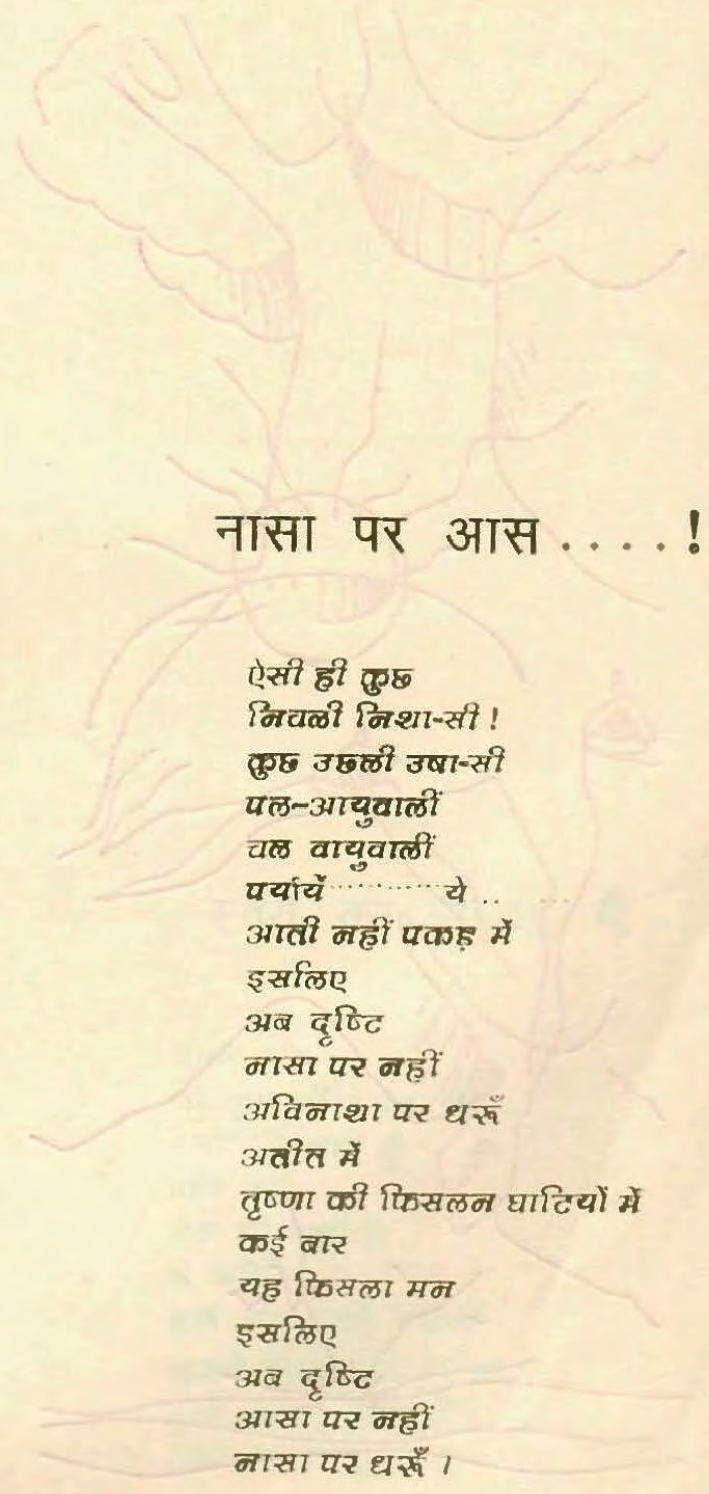 नासा पर आस . . . . !
ऐसी ही कुछ
निचली निशा-सी !
कुछ उछली उषा-सी
पल-आयुवालीं
चल वायुवालीं
पर्यायें ............ ये .. ...
आती नहीं पकड़ में
इसलिए
अब दृष्टि
नासा पर नहीं
अविनाशा पर धरूँ
अतीत में
तृष्णा की फिसलन घाटियों में
कई बार
यह फिसला मन
इसलिए
अब दृष्टि
आसा पर नहीं
नासा पर धरूँ ।